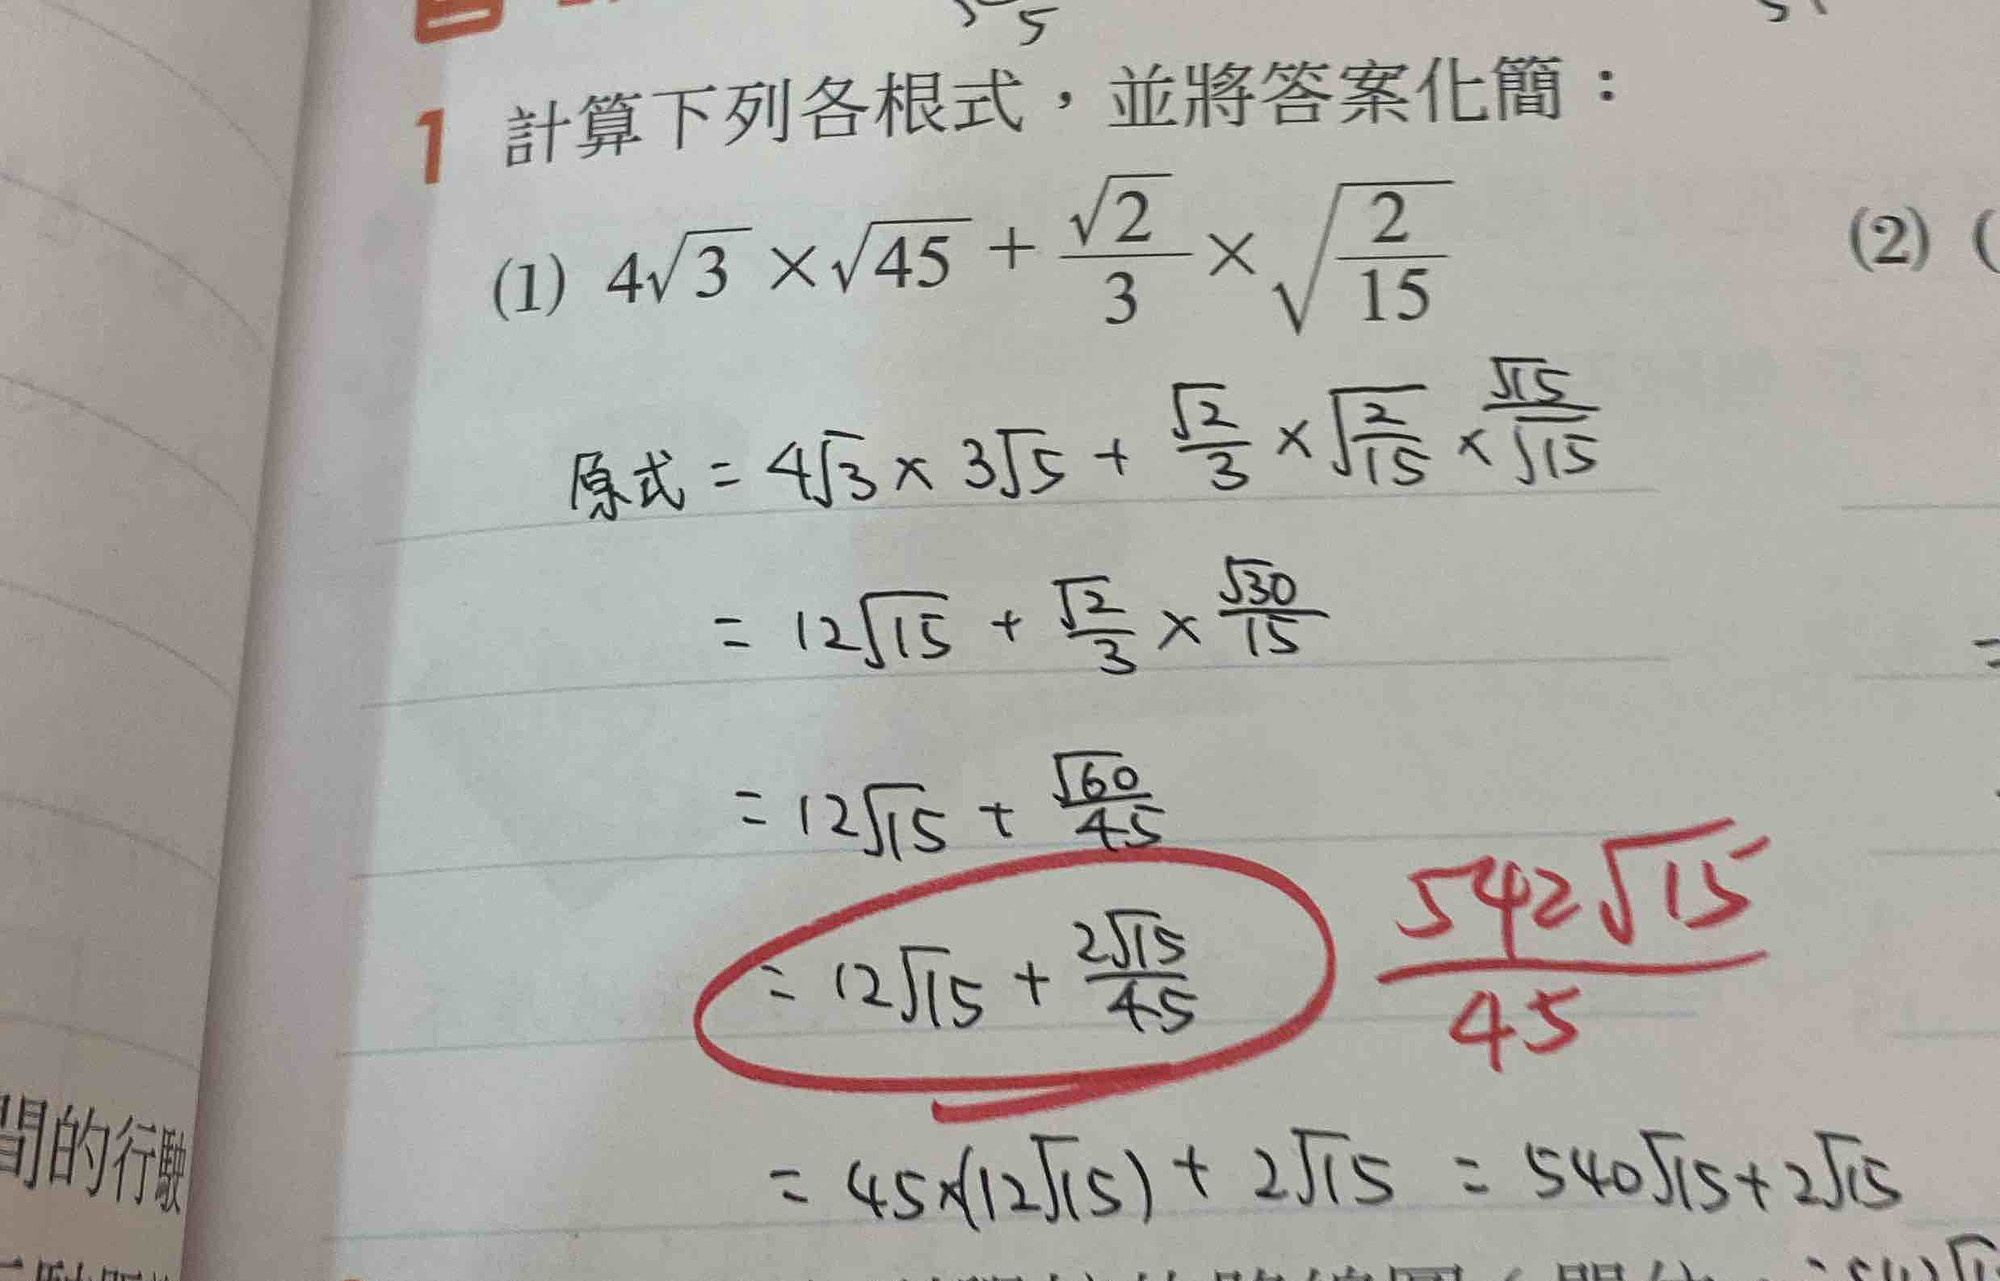 1 計算下列各根式，並將答案化簡：
(1) 4√3 ×√45 + √2/3 × √(2/15)
(2) (
原式 = 4√3 × 3√5 + √2/3 × √(2/15) × √15/√15
= 12√15 + √2/3 × √30/15
= 12√15 + √60/45
= 12√15 + 2√15/45
542√15/45
= 45×(12√15) + 2√15 = 540√15 + 2√15
間的行駛